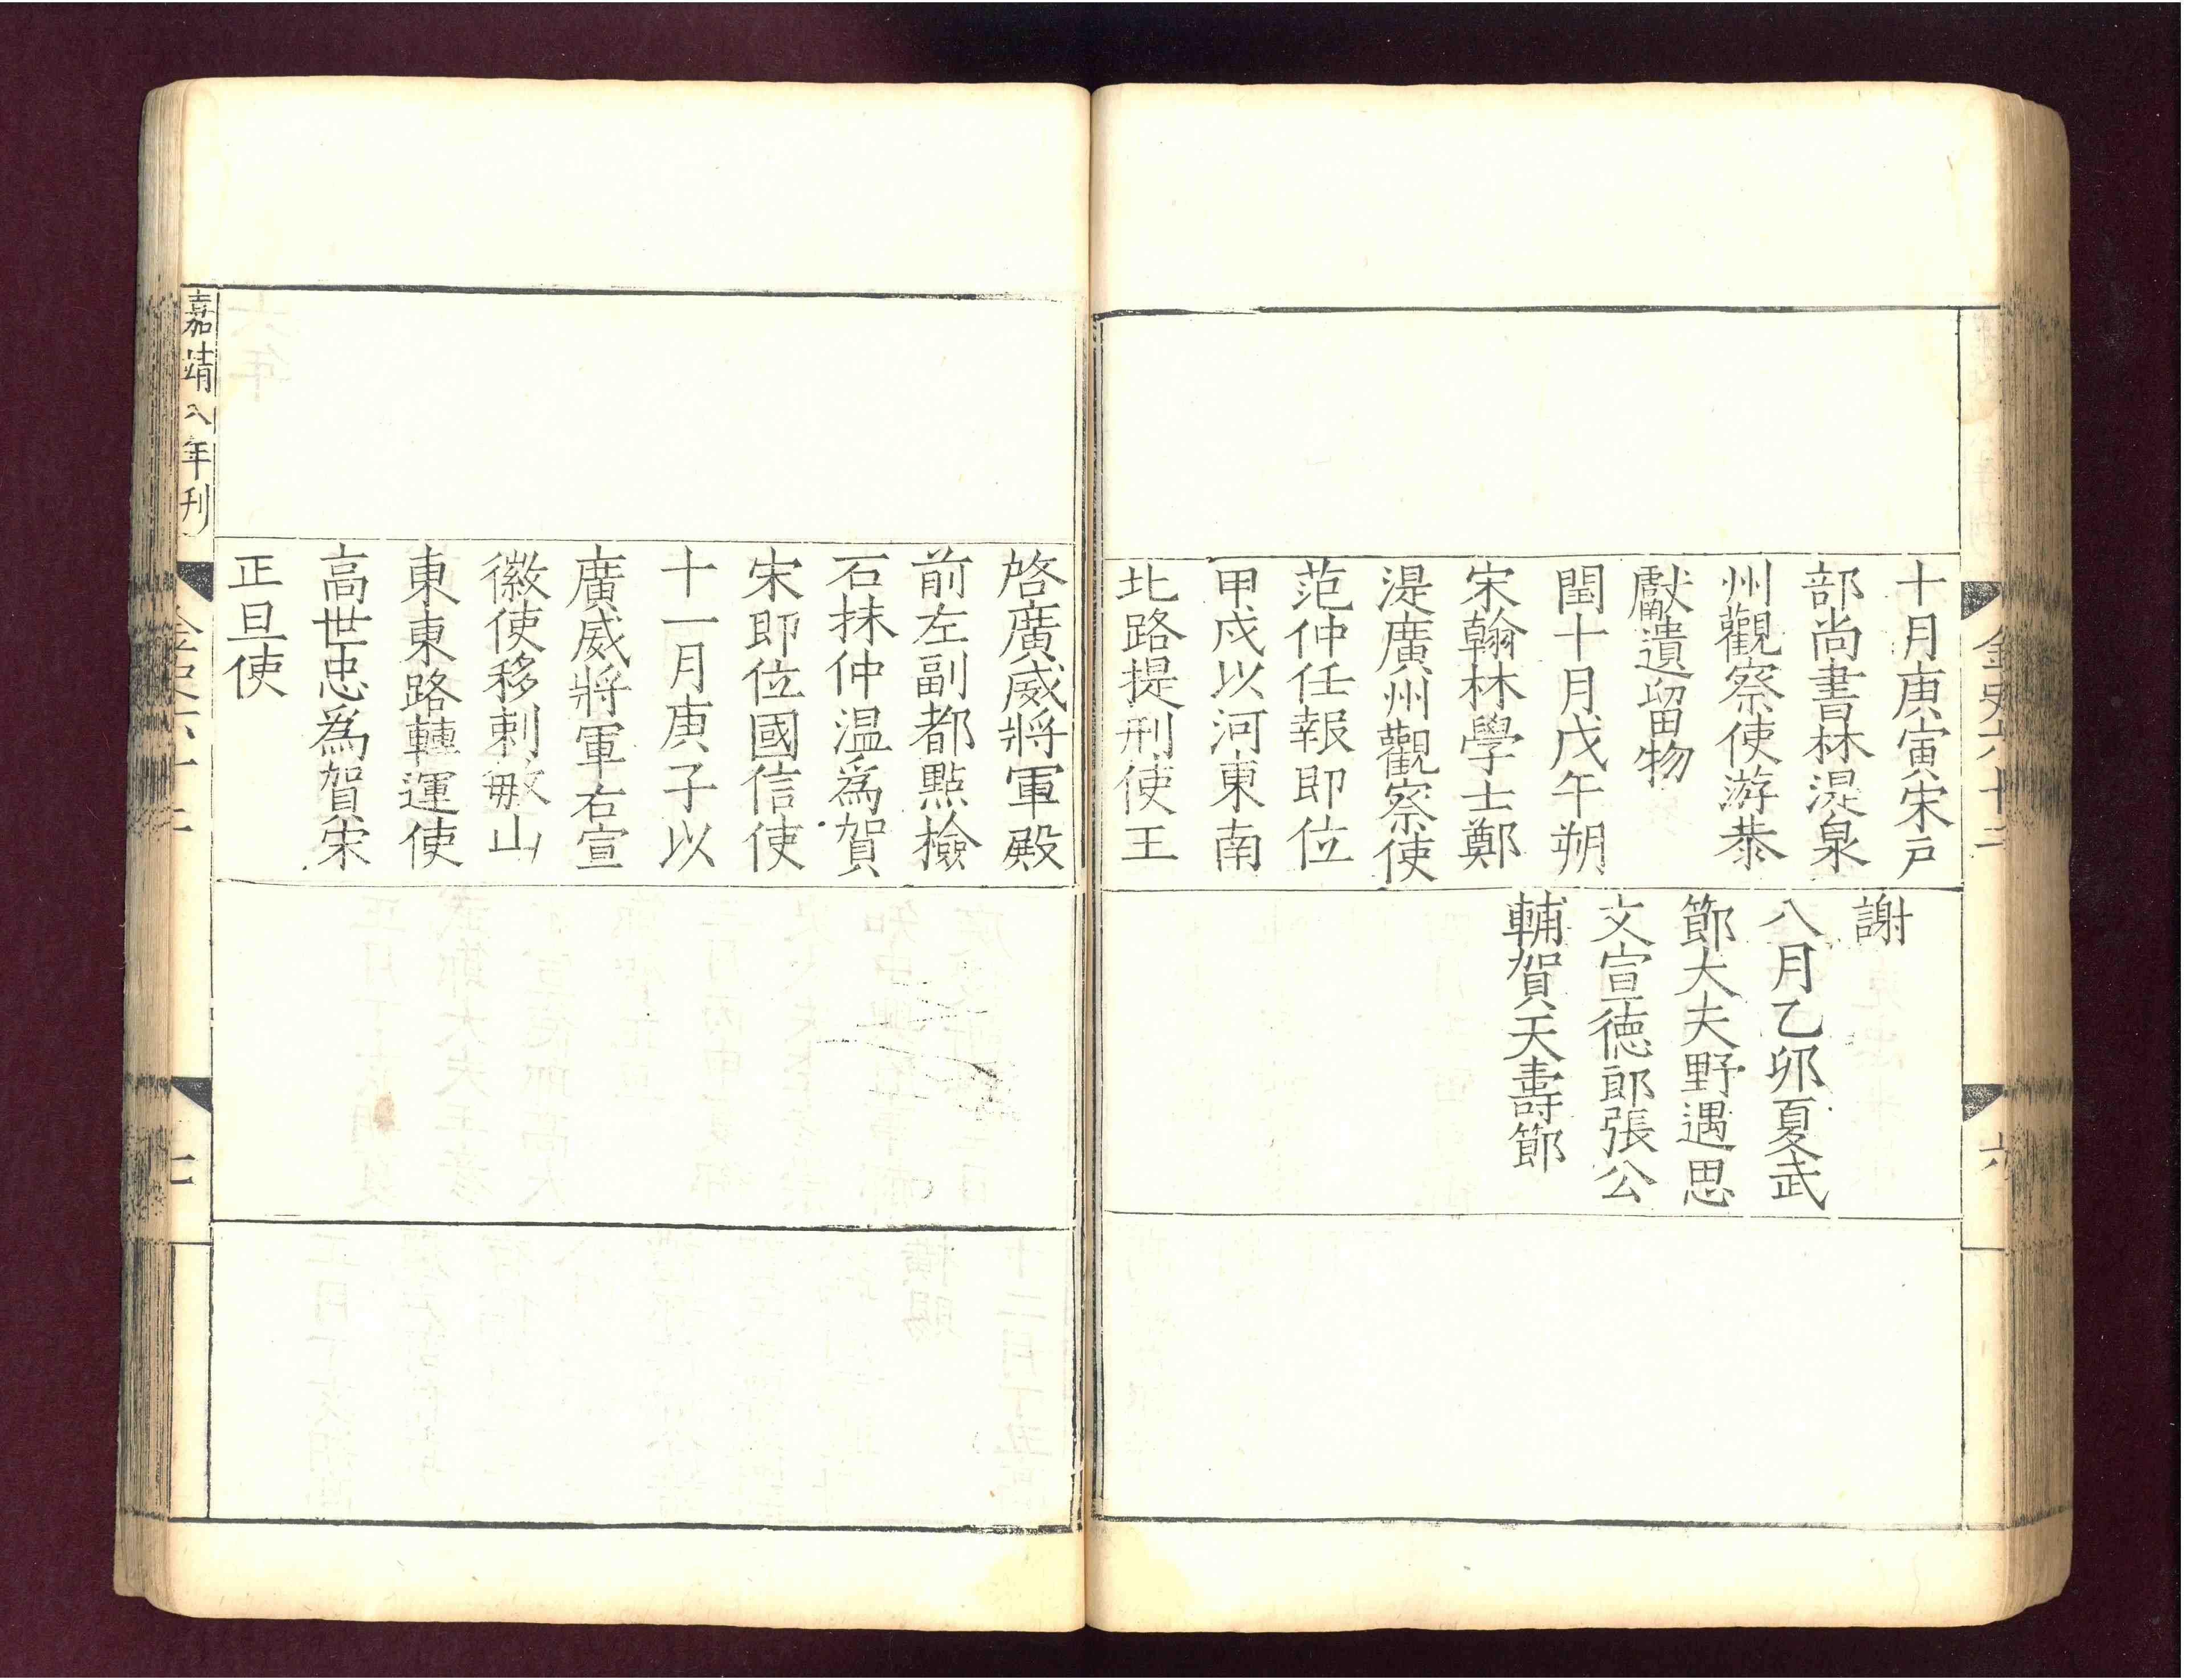 金史六十二
六
十月庚寅宋戶
部尚書林湜泉
州觀察使游恭
獻遺留物
閏十月戊午朔
宋翰林學士鄭
湜廣州觀察使
范仲任報即位
甲戌以河東南
北路提刑使王
謝
八月乙卯夏武
節大夫野遇思
文宣德郎張公
輔賀天壽節
啓廣威將軍殿
前左副都點檢
石抹仲温爲賀
宋即位國信使
十一月庚子以
廣威將軍右宣
徽使移剌敏山
東東路轉運使
高世忠爲賀宋
正旦使
嘉靖八年刊
金史六十二
七